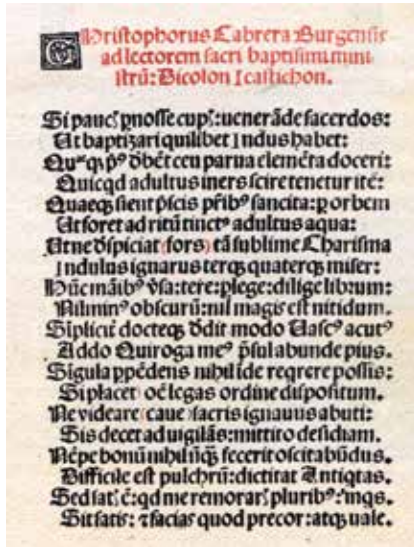 Christophorus Cabrera Burgensis
ad lectorem sacri baptismi mini
strū: Dicolon Icastichon.
Si paucꝭ pnosse cupꝭ: venerāde sacerdos:
Ut baptizari quilibet Indus habet:
Quęqꝫ pꝰ dbēt ceu parua elemēta doceri:
Quicqd adultus iners scire tenetur itē:
Quaeqꝫ sient pscis pribꝰ sancita: p orbem
Ut foret ad ritū tinctꝰ adultus aqua:
Ut ne dspiciat (fors) tā sublime Charisma
Indulus ignarus terqꝫ quaterqꝫ miser:
Hūc māibꝰ vsa: tere: plege: dilige librum:
Nil minꝰ obscurū: nil magis est nitidum.
Simplicit docteqꝫ ddit modo Vascꝰ acutꝰ
Addo Quiroga meꝰ psul abunde pius.
Sigula ppēdens nihil ide reqrere possis:
Si placet oē legas ordine dispositum.
Ne videare (caue) sacris ignauus abuti:
Sis decet aduigilās: mittito desidiam.
Nēpe bonū nihil vnqꝫ fecerit oscitabūdus.
Difficile est pulchrū: dictitat Antiqtas.
Sed satꝭ ē: qd me remorarꝭ pluribꝰ: inqs.
Sit satis: ⁊ facias quod precor: atqꝫ vale.